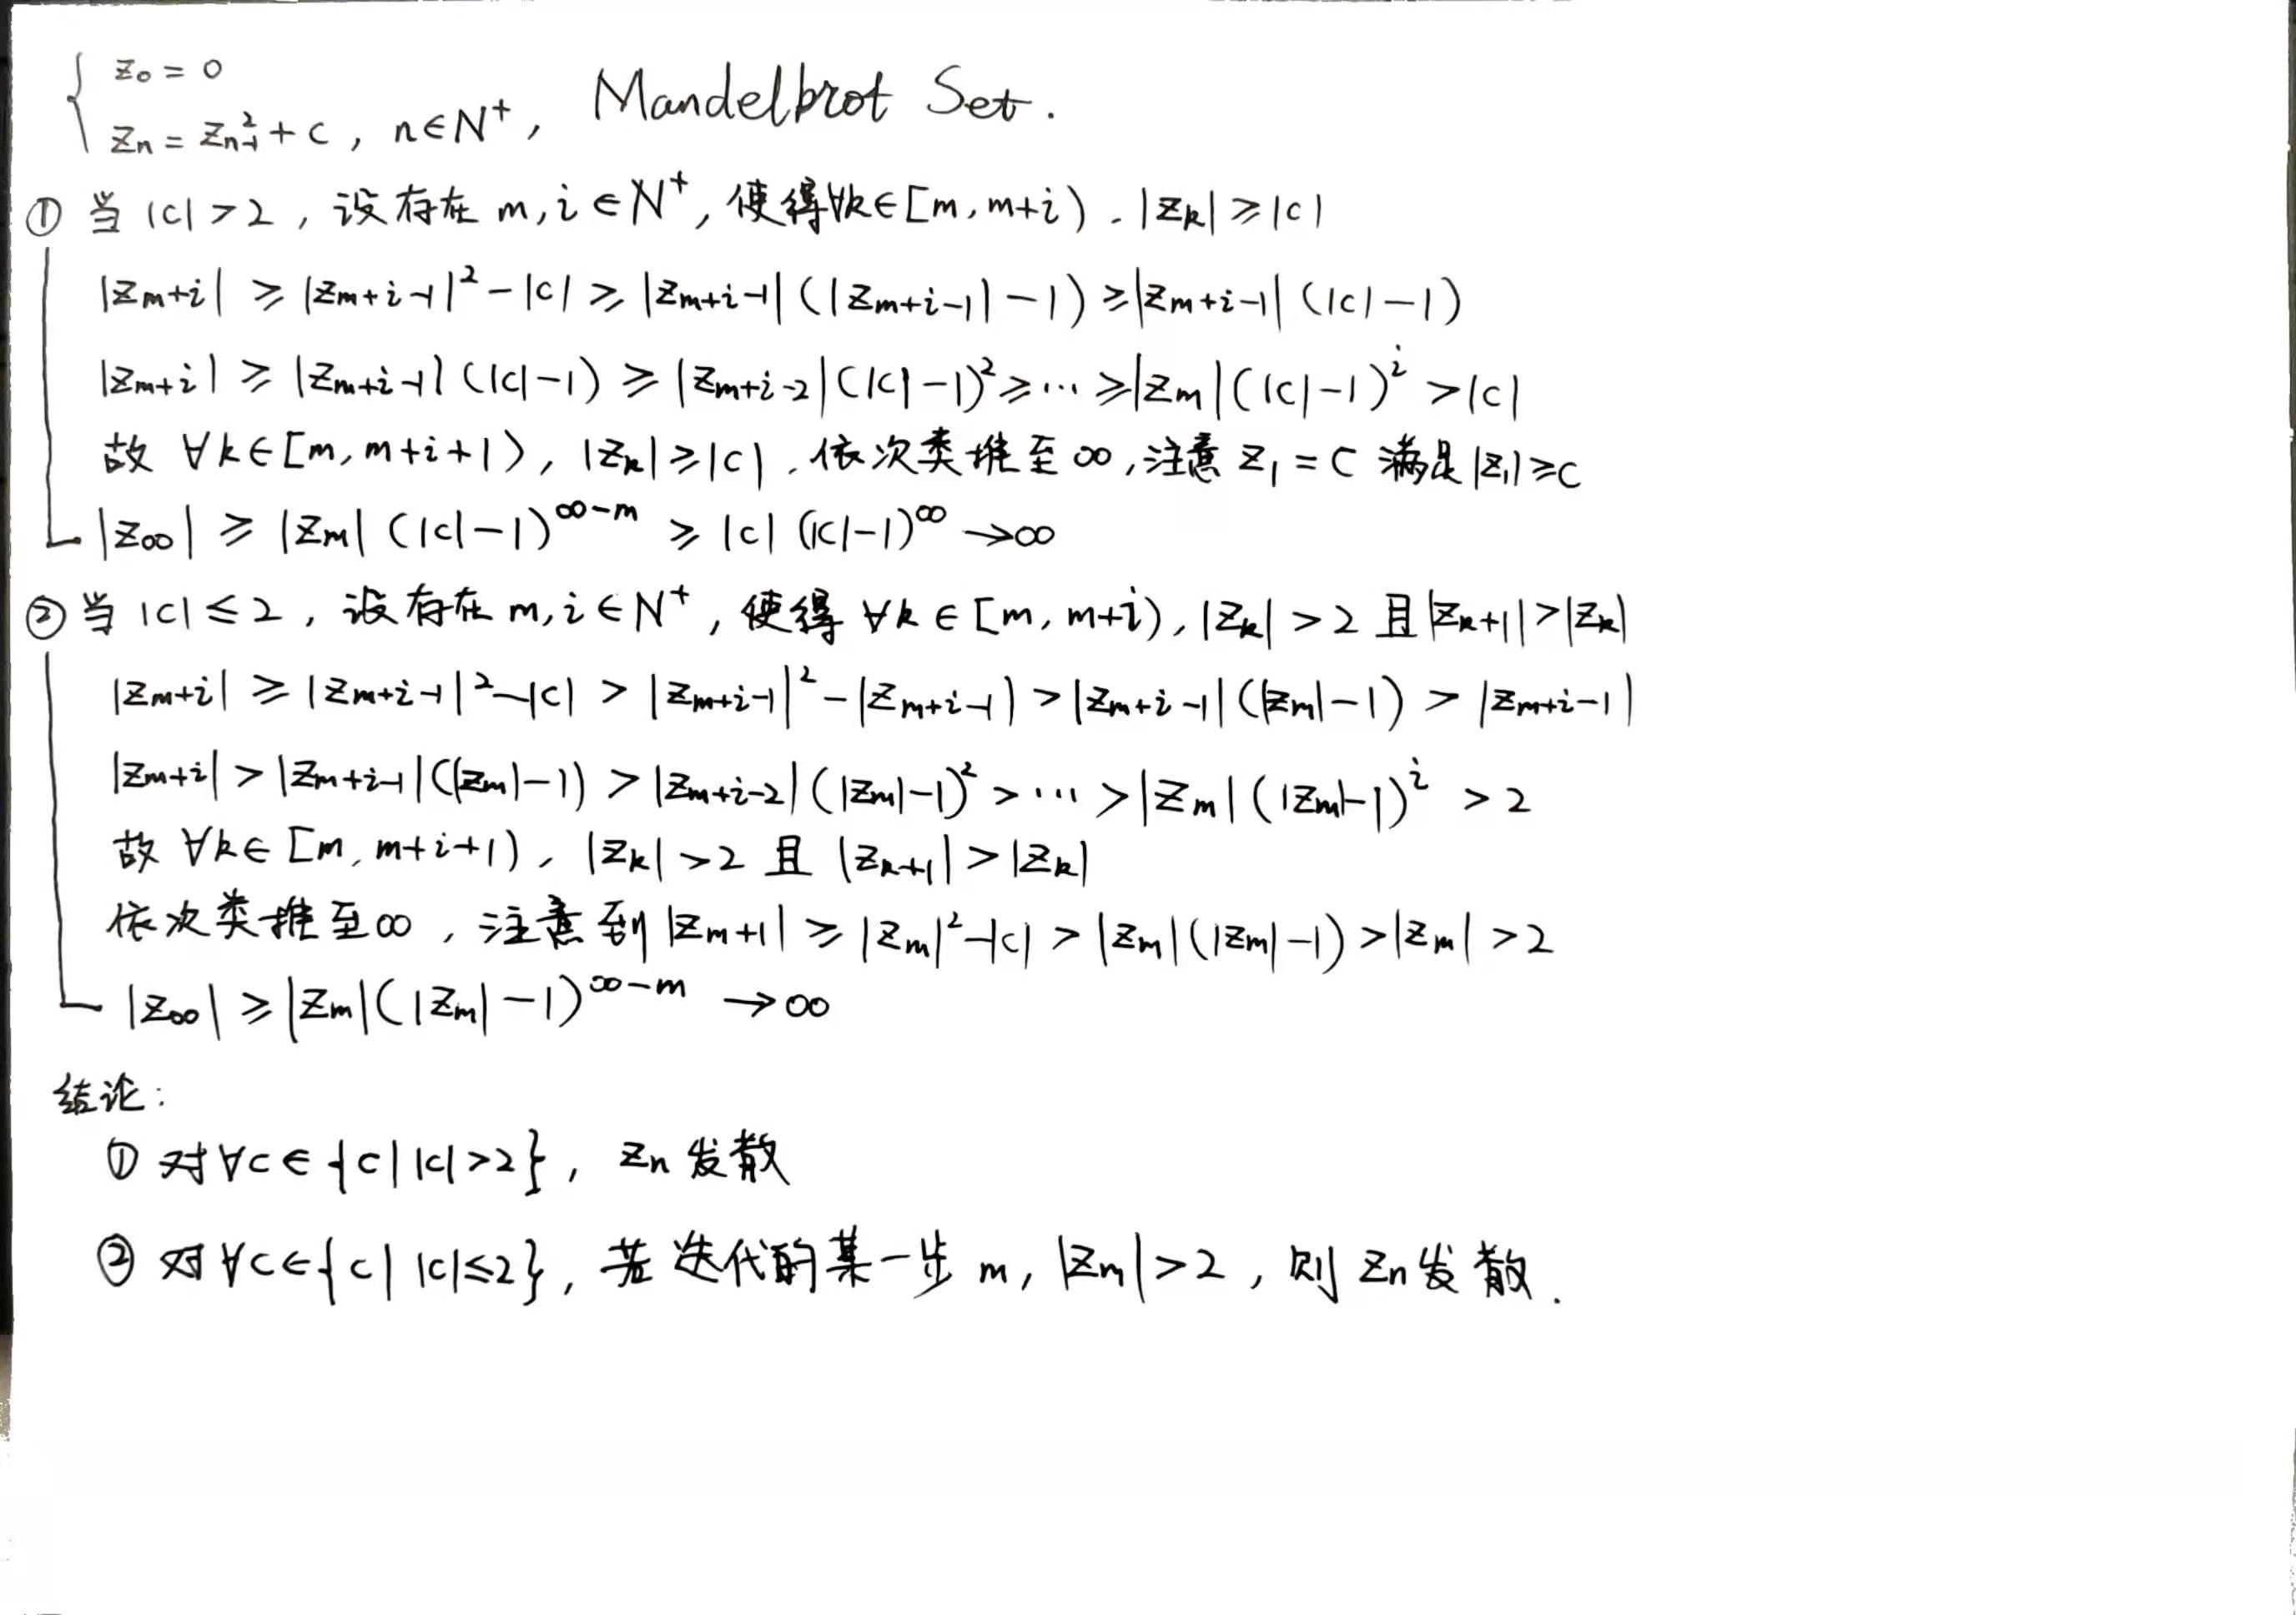 z₀ = 0
zₙ = zₙ₋₁² + c , n∈N⁺, Mandelbrot Set.
① 当 |c| > 2 , 设存在 m, i ∈ N⁺, 使得∀k∈[m, m+i) . |zₖ| ≥ |c|
|zₘ₊ᵢ| ≥ |zₘ₊ᵢ₋₁|² - |c| ≥ |zₘ₊ᵢ₋₁| (|zₘ₊ᵢ₋₁| - 1) ≥ |zₘ₊ᵢ₋₁| (|c| - 1)
|zₘ₊ᵢ| ≥ |zₘ₊ᵢ₋₁| (|c| - 1) ≥ |zₘ₊ᵢ₋₂| (|c| - 1)² ≥ ⋯ ≥ |zₘ| (|c| - 1)ⁱ > |c|
故 ∀k∈[m, m+i+1), |zₖ| ≥ |c| , 依次类推至 ∞ , 注意 z₁ = c 满足 |z₁| ≥ c
|z∞| ≥ |zₘ| (|c| - 1)^(∞-m) ≥ |c| (|c| - 1)^∞ → ∞
② 当 |c| ≤ 2 , 设存在 m, i ∈ N⁺ , 使得 ∀k ∈ [m, m+i), |zₖ| > 2 且 |zₖ₊₁| > |zₖ|
|zₘ₊ᵢ| ≥ |zₘ₊ᵢ₋₁|² - |c| > |zₘ₊ᵢ₋₁|² - |zₘ₊ᵢ₋₁| > |zₘ₊ᵢ₋₁| (|zₘ| - 1) > |zₘ₊ᵢ₋₁|
|zₘ₊ᵢ| > |zₘ₊ᵢ₋₁| (|zₘ| - 1) > |zₘ₊ᵢ₋₂| (|zₘ| - 1)² > ⋯ > |zₘ| (|zₘ| - 1)ⁱ > 2
故 ∀k∈ [m, m+i+1) , |zₖ| > 2 且 |zₖ₊₁| > |zₖ|
依次类推至∞ , 注意到 |zₘ₊₁| ≥ |zₘ|² - |c| > |zₘ| (|zₘ| - 1) > |zₘ| > 2
|z∞| ≥ |zₘ| (|zₘ| - 1)^(∞-m) → ∞
结论:
① 对∀c∈{c| |c|>2}, zₙ 发散
② 对∀c∈{c| |c|≤2}, 若迭代的某一步 m, |zₘ| > 2 , 则 zₙ 发散 .